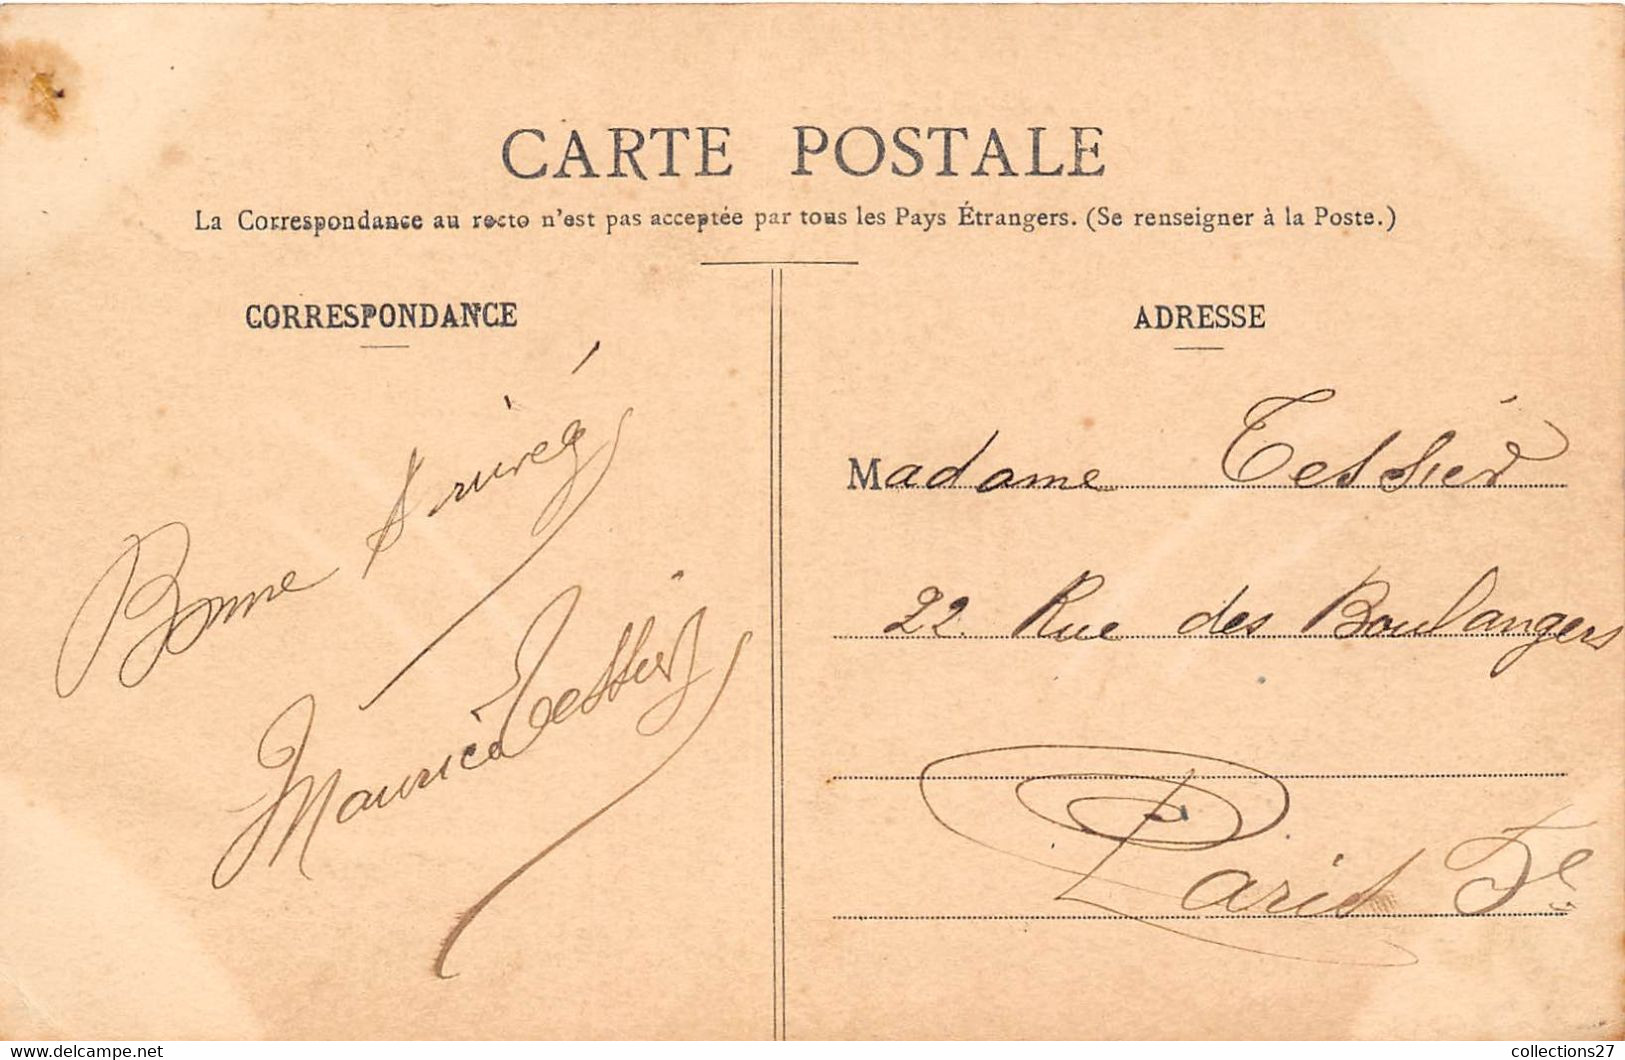 CARTE POSTALE
La Correspondance au recto n'est pas acceptée par tous les Pays Étrangers. (Se renseigner à la Poste.)
CORRESPONDANCE
Bonne Arrivée
Maurice Tessier
ADRESSE
Madame Tessier
22 Rue des Boulangers
Paris 5e
collections27